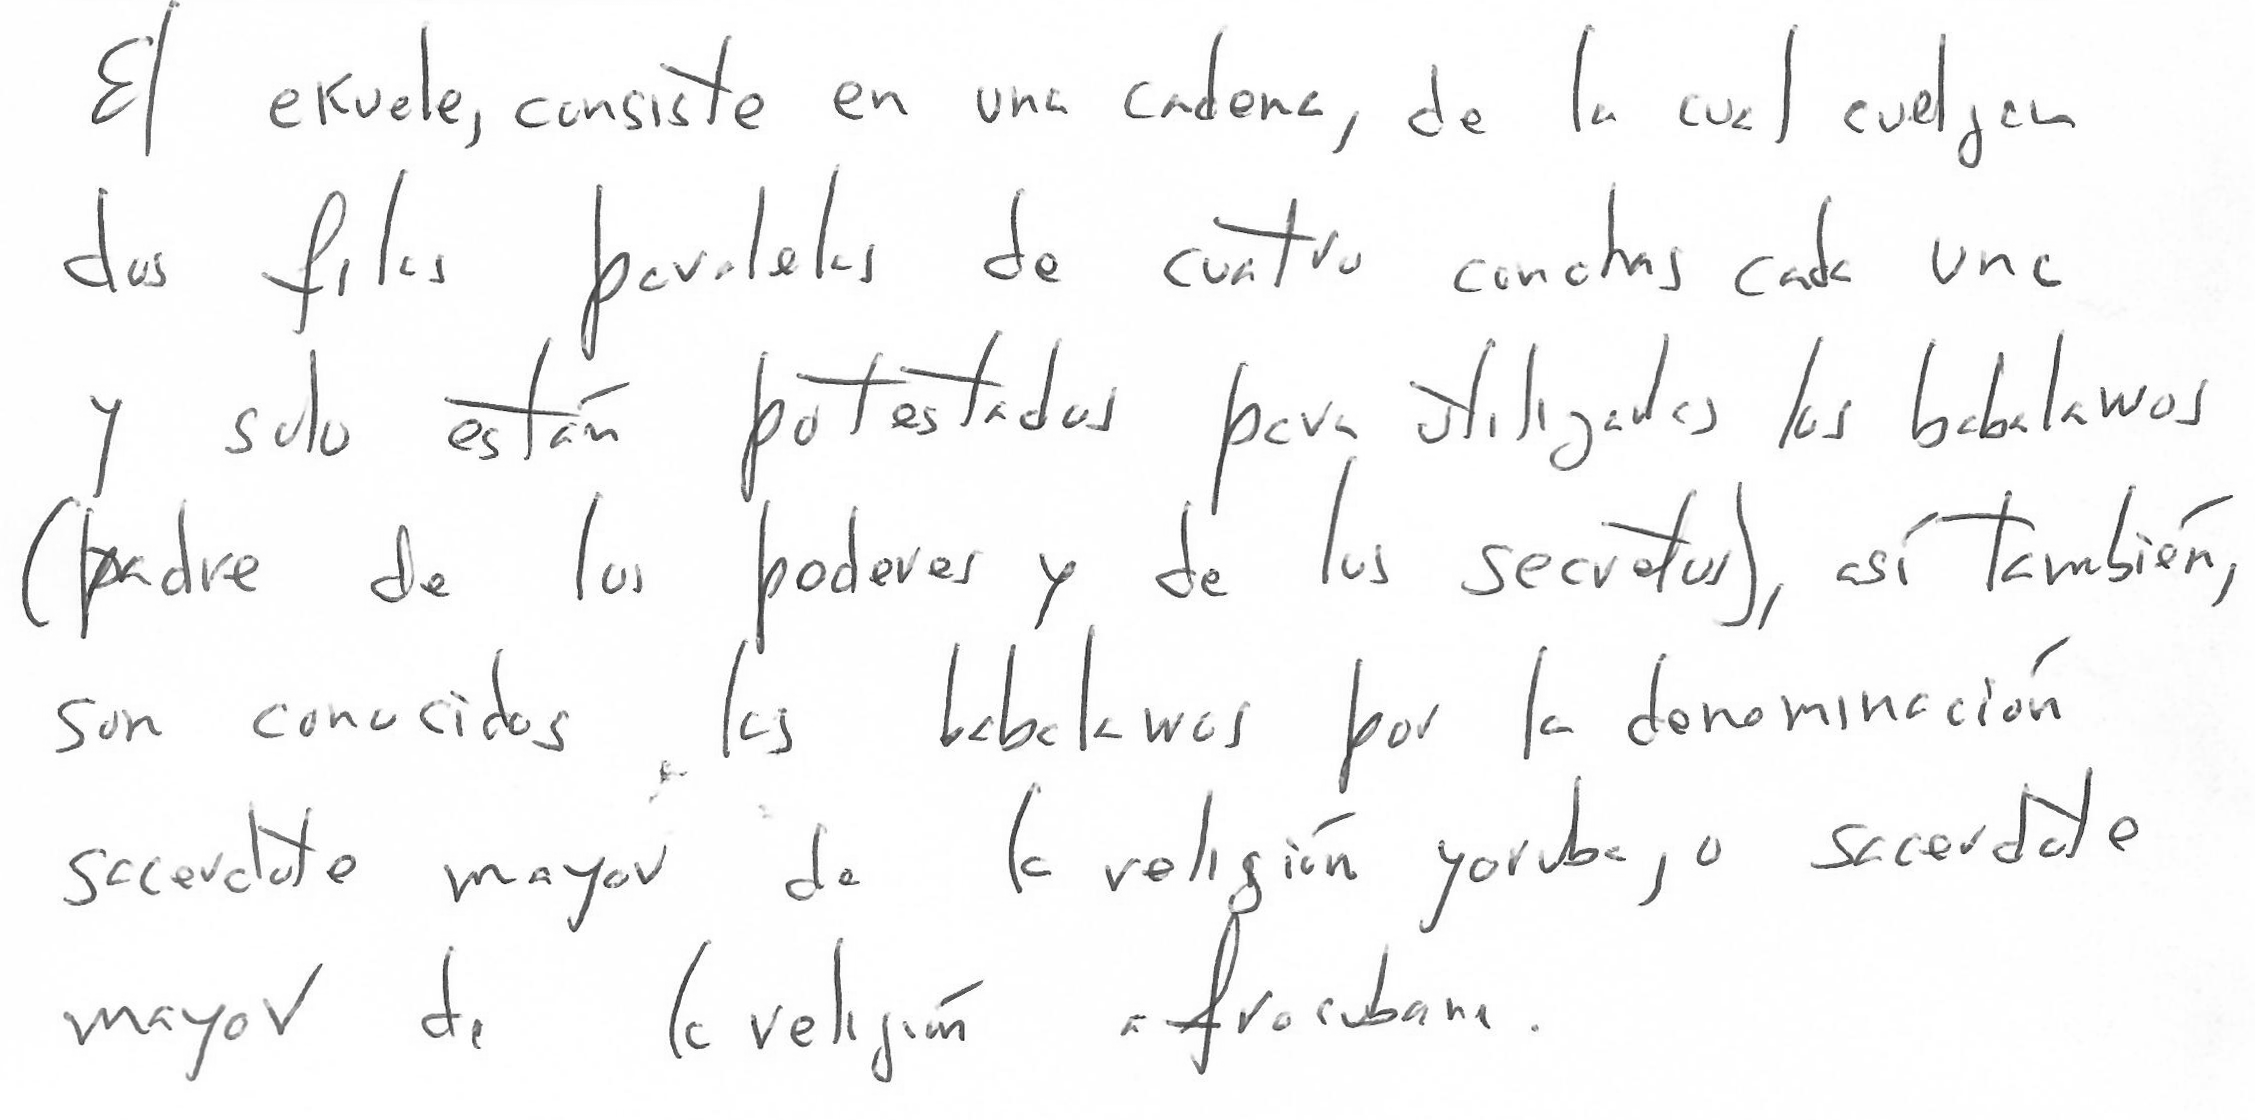 El ekuele, consiste en una cadena, de la cual cuelgan
dos filas paralelas de cuatro conchas cada una
y solo están potestados para utilizadas los babalawos
(padre de los poderes y de los secretos), así también,
son conocidos los babalawos por la denominación
sacerdote mayor de la religión yoruba, o sacerdote
mayor de la religión afrocubana.